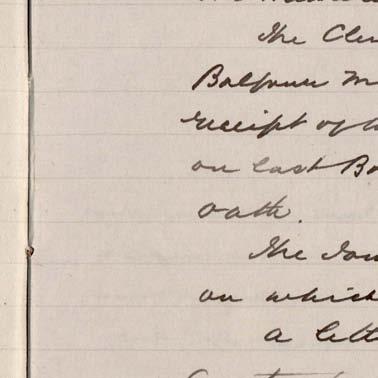 The Cler
Balfour M
receipt of
on last Bo
oath.
The Tow
on which
a lett